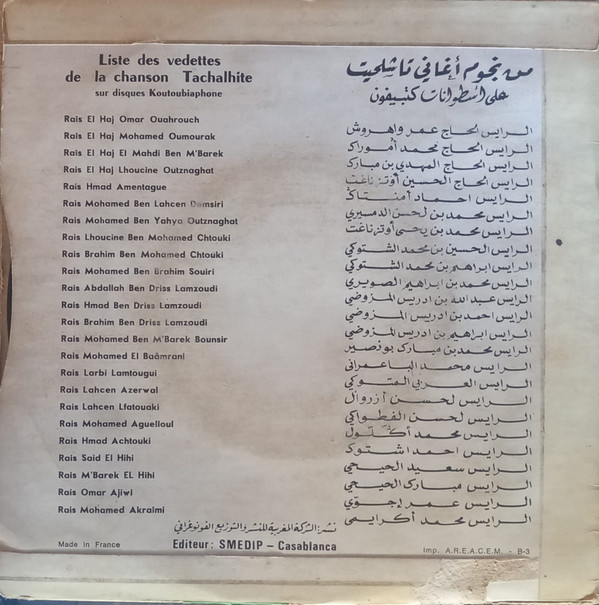 Liste des vedettes
de la chanson Tachalhite
sur disques Koutoubiaphone
Rais El Haj Omar Ouahrouch
Rais El Haj Mohamed Oumourak
Rais El Haj El Mahdi Ben M'Barek
Rais El Haj Lhoucine Outznaghat
Rais Hmad Amentague
Rais Mohamed Ben Lahcen Demsiri
Rais Mohamed Ben Yahya Outznaghat
Rais Lhoucine Ben Mohamed Chtouki
Rais Brahim Ben Mohamed Chtouki
Rais Mohamed Ben Brahim Souiri
Rais Abdallah Ben Driss Lamzoudi
Rais Hmad Ben Driss Lamzoudi
Rais Brahim Ben Driss Lamzoudi
Rais Mohamed Ben M'Barek Bounsir
Rais Mohamed El Baâmrani
Rais Larbi Lamtougui
Rais Lahcen Azerwal
Rais Lahcen Lfatouaki
Rais Mohamed Aguelloul
Rais Hmad Achtouki
Rais Said El Hihi
Rais M'Barek EL Hihi
Rais Omar Ajiwi
Rais Mohamed Akraimi
من نجوم أغاني تاشلحيت
على اسطوانات كتبيفون
الرايس الحاج عمر واهروش
الرايس الحاج محمد أموراك
الرايس الحاج المهدي بن مبارك
الرايس الحاج الحسين أوتزناغت
الرايس احماد أمنتاك
الرايس محمد بن لحسن الدمسيري
الرايس محمد بن يحيى أوتزناغت
الرايس الحسين بن محمد الشتوكي
الرايس ابراهيم بن محمد الشتوكي
الرايس محمد بن ابراهيم الصويري
الرايس عبد الله بن ادريس المزوضي
الرايس احمد بن ادريس المزوضي
الرايس ابراهيم بن ادريس المزوضي
الرايس محمد بن مبارك بونصير
الرايس محمد الباعمراني
الرايس العربي المتوكي
الرايس لحسن أزروال
الرايس لحسن الفطواكي
الرايس محمد أكلول
الرايس احمد اشتوك
الرايس سعيد الحيحي
الرايس مبارك الحيحي
الرايس عمر إجوي
الرايس محمد أكرايمي
نشر: الشركة المغربية للنشر والتوزيع الفونوغرافي
Made In France
Editeur: SMEDIP – Casablanca
Imp. A.R.E.A.C.E.M. - B-3